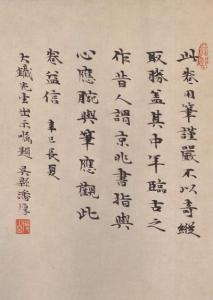 此卷用筆謹嚴不以奇縱
取勝蓋其中年臨古之
作昔人謂京兆書指與
心應腕與筆應觀此
卷益信 辛巳長夏
大鐵先生出示囑題 吳縣潘厚